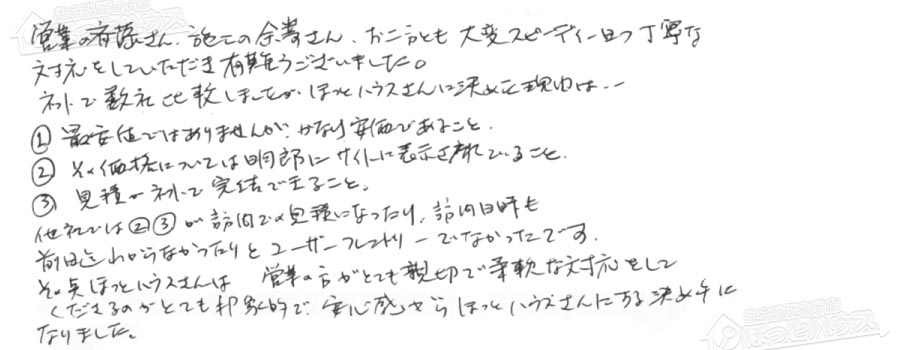 営業の斉藤さん、施工の余嵜さん、お二方とも大変スピーディー且つ丁寧な
対応をしていただき有難うございました。
ネットで数社比較しましたが、ほっとハウスさんに決めた理由は、ー
① 最安値ではありませんが、かなり安価であること、
② その価格については明朗にサイトに表示されていること、
③ 見積がネットで完結できること。
他社では②③が訪問での見積になったり、訪問日時も
前日迄わからなかったりとユーザーフレンドリーでなかったです。
その点ほっとハウスさんは 営業の方がとても親切で柔軟な対応をして
くださるのがとても印象的で、安心感からほっとハウスさんにする決め手に
なりました。
ほっとハウス
ほっとハウス